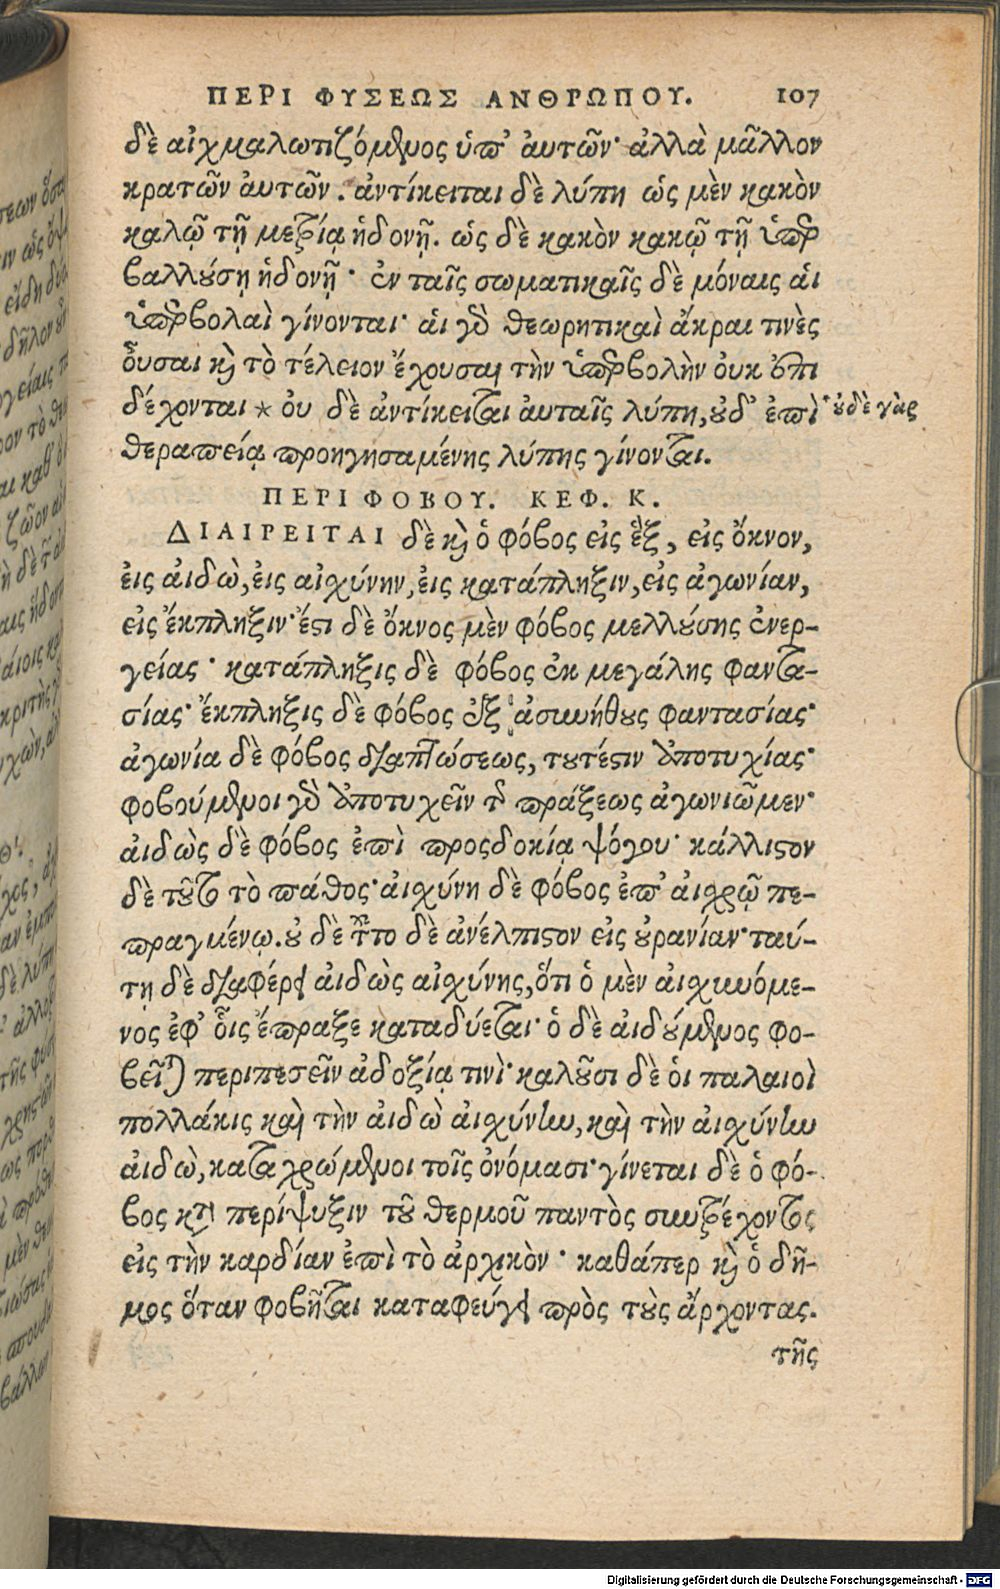 ΠΕΡΙ ΦΥΣΕΩΣ ΑΝΘΡΩΠΟΥ. 107
δὲ αἰχμαλωτιζόμενος ὑπ' ἀυτῶν· ἀλλὰ μᾶλλον
κρατῶν ἀυτῶν. ἀντίκειται δὲ λύπη ὡς μὲν κακὸν
καλῷ τῇ μετρίᾳ ἡδονῇ. ὡς δὲ κακὸν κακῷ τῇ ὑπερ
βαλλούσῃ ἡδονῇ· ἐν ταῖς σωματικαῖς δὲ μόναις ἁι
ὑπερβολαὶ γίνονται· ἁι γὰρ θεωρητικαὶ ἄκραι τινὲς
οὖσαι καὶ τὸ τέλειον ἔχουσαι τὴν ὑπερβολὴν ὀυκ ἐπι
δέχονται * ὀυ δὲ ἀντίκειται ἀυταῖς λύπη, ὀυδ' ἐπὶ
* ὀυδὲ γὰρ
θεραπείᾳ προηγησαμένης λύπης γίνονται.
ΠΕΡΙ ΦΟΒΟΥ. ΚΕΦ. Κ.
ΔΙΑΙΡΕΙΤΑΙ δὲ καὶ ὁ φόβος εἰς ἓξ, εἰς ὄκνον,
ἐις ἀιδὼ, ἐις αἰχύνην, ἐις κατάπληξιν, εἰς ἀγωνίαν,
εἰς ἔκπληξιν· ἔστι δὲ ὄκνος μὲν φόβος μελλούσης ἐνερ-
γείας· κατάπληξις δὲ φόβος ἐκ μεγάλης φαντα-
σίας· ἔκπληξις δὲ φόβος ἐξ ἀσυνήθους φαντασίας·
ἀγωνία δὲ φόβος διαπτώσεως, τουτέστιν ἀποτυχίας·
φοβούμενοι γὰρ ἀποτυχεῖν τῆς πράξεως ἀγωνιῶμεν·
ἀιδὼς δὲ φόβος ἐπὶ προςδοκίᾳ ψόγου· κάλλιστον
δὲ τοῦτο τὸ πάθος· ἀιχύνη δὲ φόβος ἐπ' ἀιχρῷ πε-
πραγμένῳ. ὀυ δὲ τοῦτο δὲ ἀνέλπιστον εἰς ουρανίαν· ταύ-
τῃ δὲ διαφέρει ἀιδὼς αἰχύνης, ὅτι ὁ μὲν ἀιχυνόμε-
νος ἐφ' οἷς ἔπραξε καταδύεται· ὁ δὲ ἀιδούμενος φο-
βεῖται περιπεσεῖν ἀδοξίᾳ τινὶ· καλοῦσι δὲ ὁι παλαιοὶ
πολλάκις καὶ τὴν ἀιδὼ ἀιχύνην, καὶ τὴν ἀιχύνην
ἀιδὼ, καταχρώμενοι τοῖς ὀνόμασι· γίνεται δὲ ὁ φό-
βος κατὰ περίψυξιν τοῦ θερμοῦ παντὸς συντρέχοντος
εἰς τὴν καρδίαν ἐπὶ τὸ ἀρχικὸν· καθάπερ καὶ ὁ δῆ-
μος ὅταν φοβῆται καταφεύγει πρὸς τοὺς ἄρχοντας.
τῆς
Digitalisierung gefördert durch die Deutsche Forschungsgemeinschaft - DFG